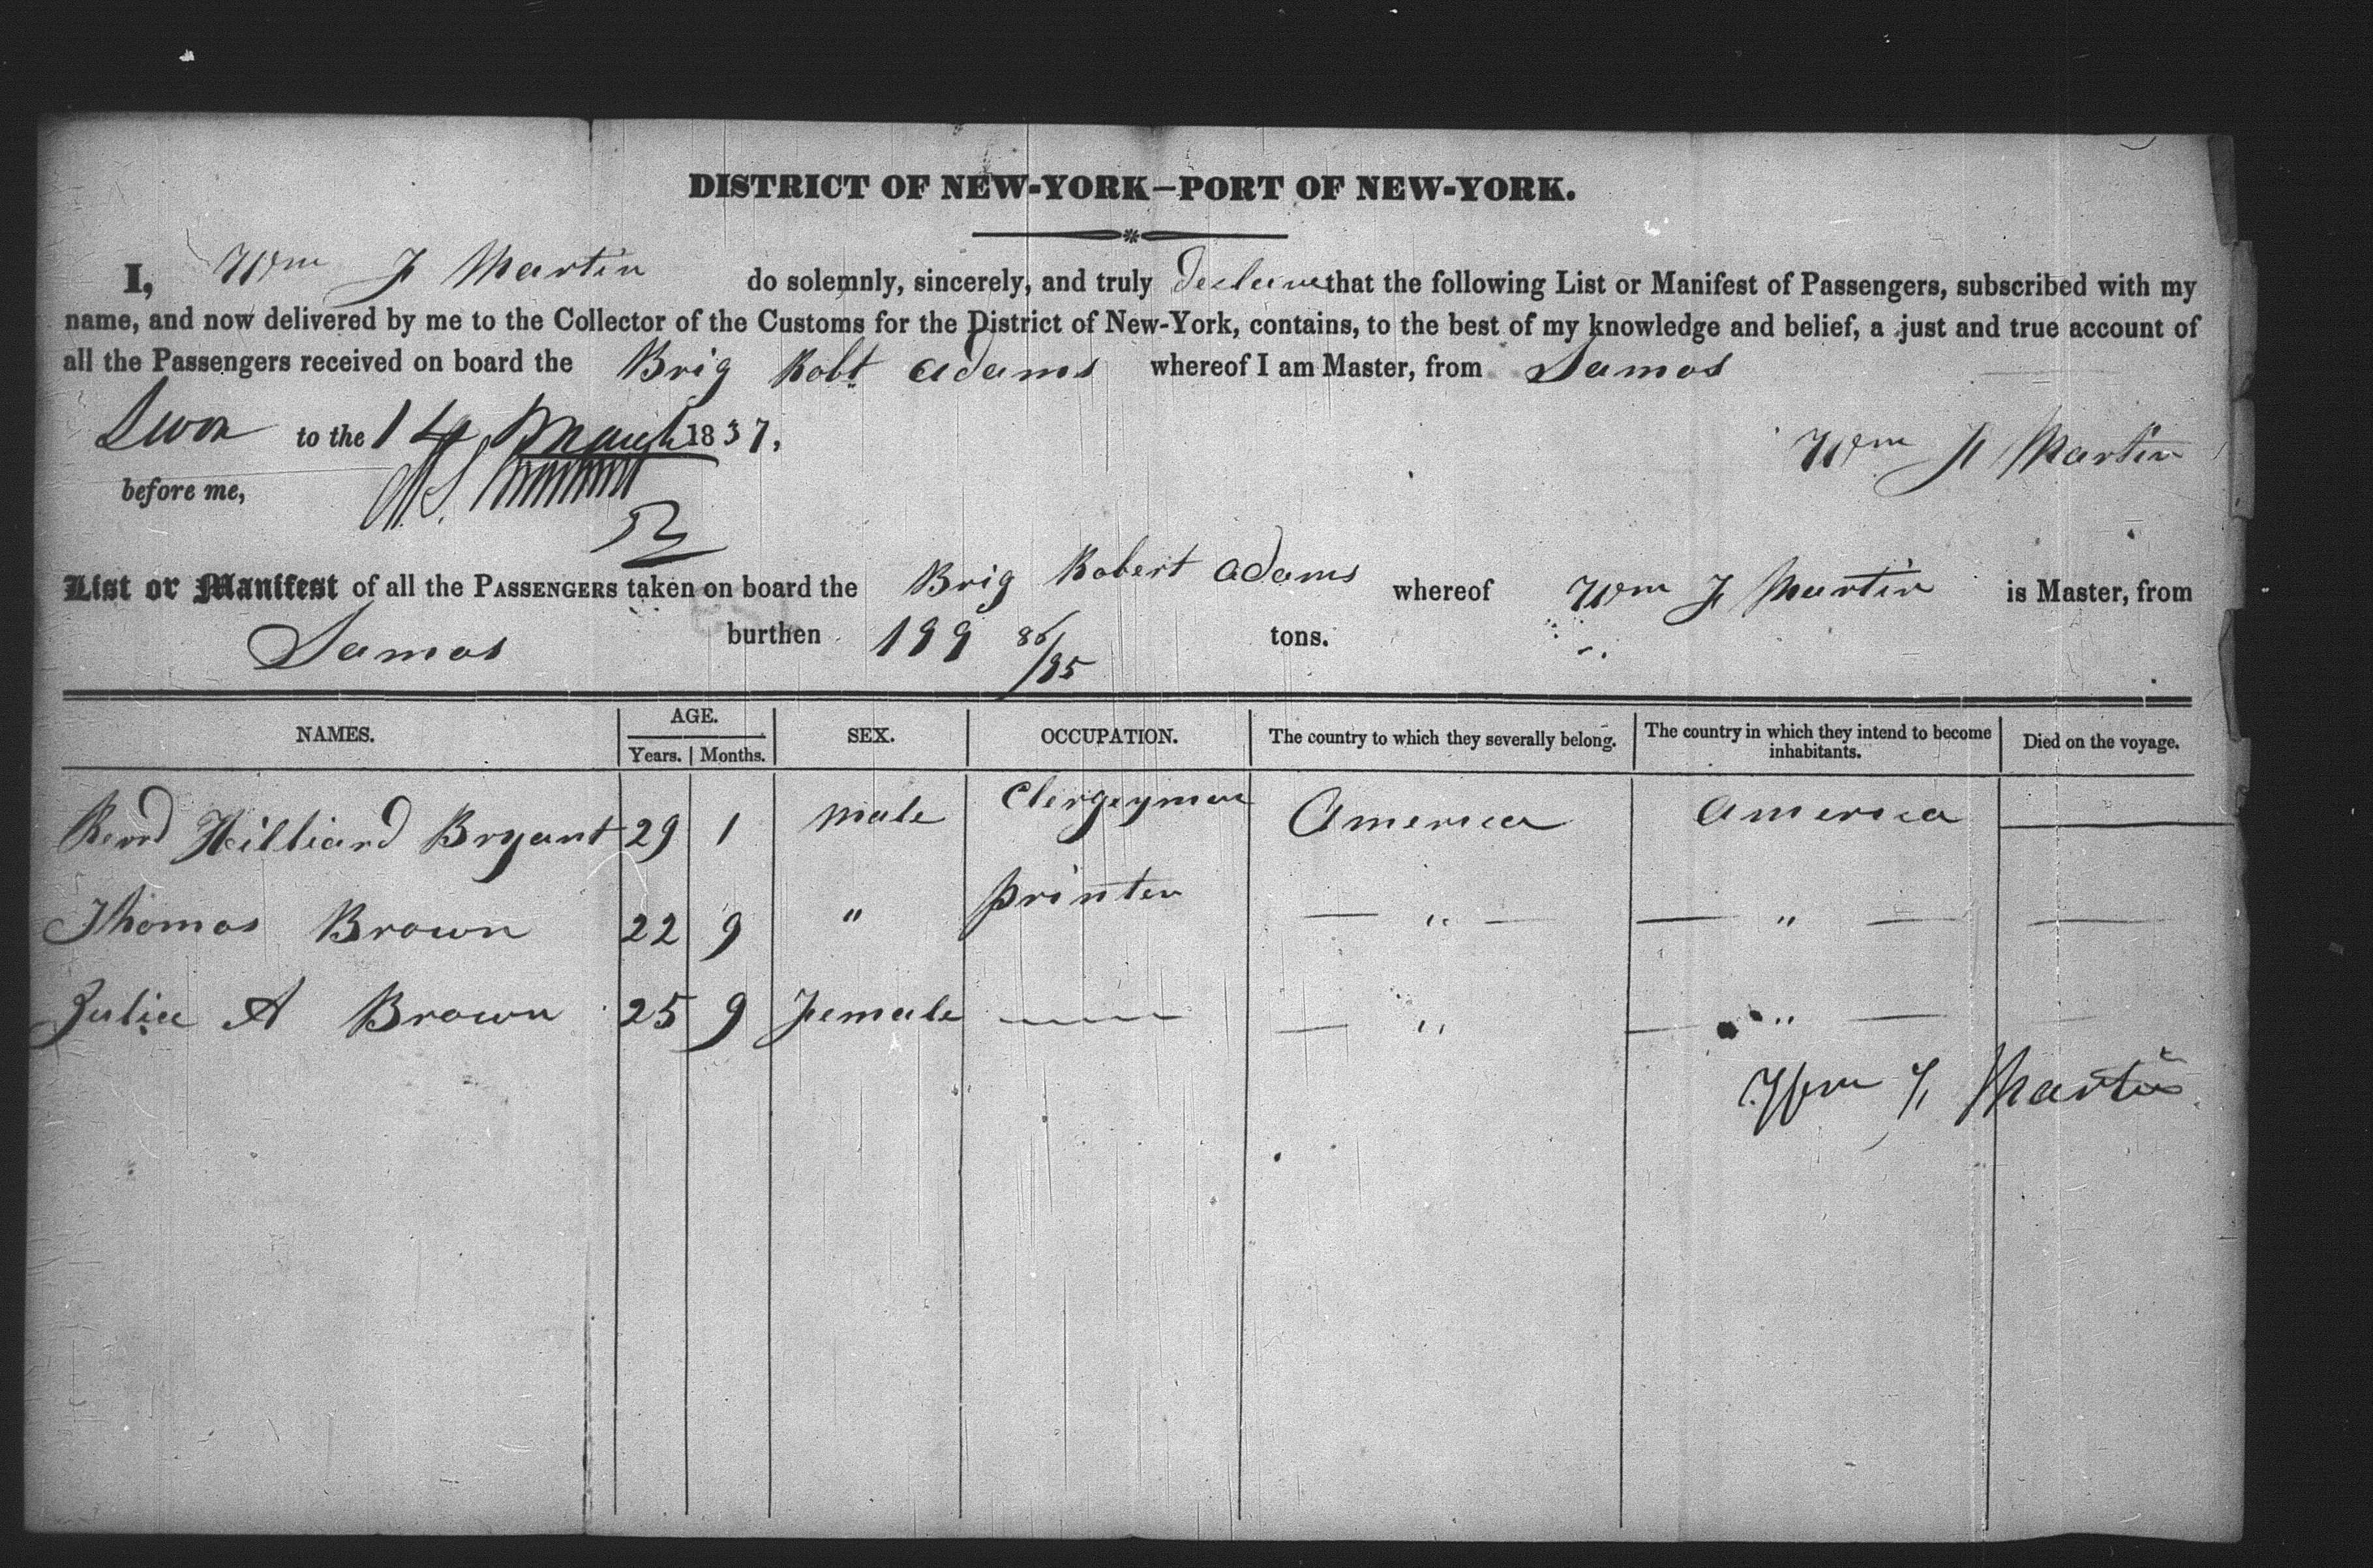 DISTRICT OF NEW-YORK—PORT OF NEW-YORK.
I, Wm F Martin do solemnly, sincerely, and truly Declare that the following List or Manifest of Passengers, subscribed with my
name, and now delivered by me to the Collector of the Customs for the District of New-York, contains, to the best of my knowledge and belief, a just and true account of
all the Passengers received on board the Brig Robt Adams whereof I am Master, from Samos
Swor to the 14 March 1837, Wm F Martin
before me,
List or Manifest of all the PASSENGERS taken on board the Brig Robert Adams whereof Wm F Martin is Master, from
Samos burthen 199 86/95 tons.
NAMES. AGE. Years. Months. SEX. OCCUPATION. The country to which they severally belong. The country in which they intend to become inhabitants. Died on the voyage.
Revd Hilliard Bryant 29 1 male Clergeyman America America —
Thomas Brown 22 9 " printer — " — — " — —
Julia A Brown 25 9 Female — — " — " — —
Wm F Martin